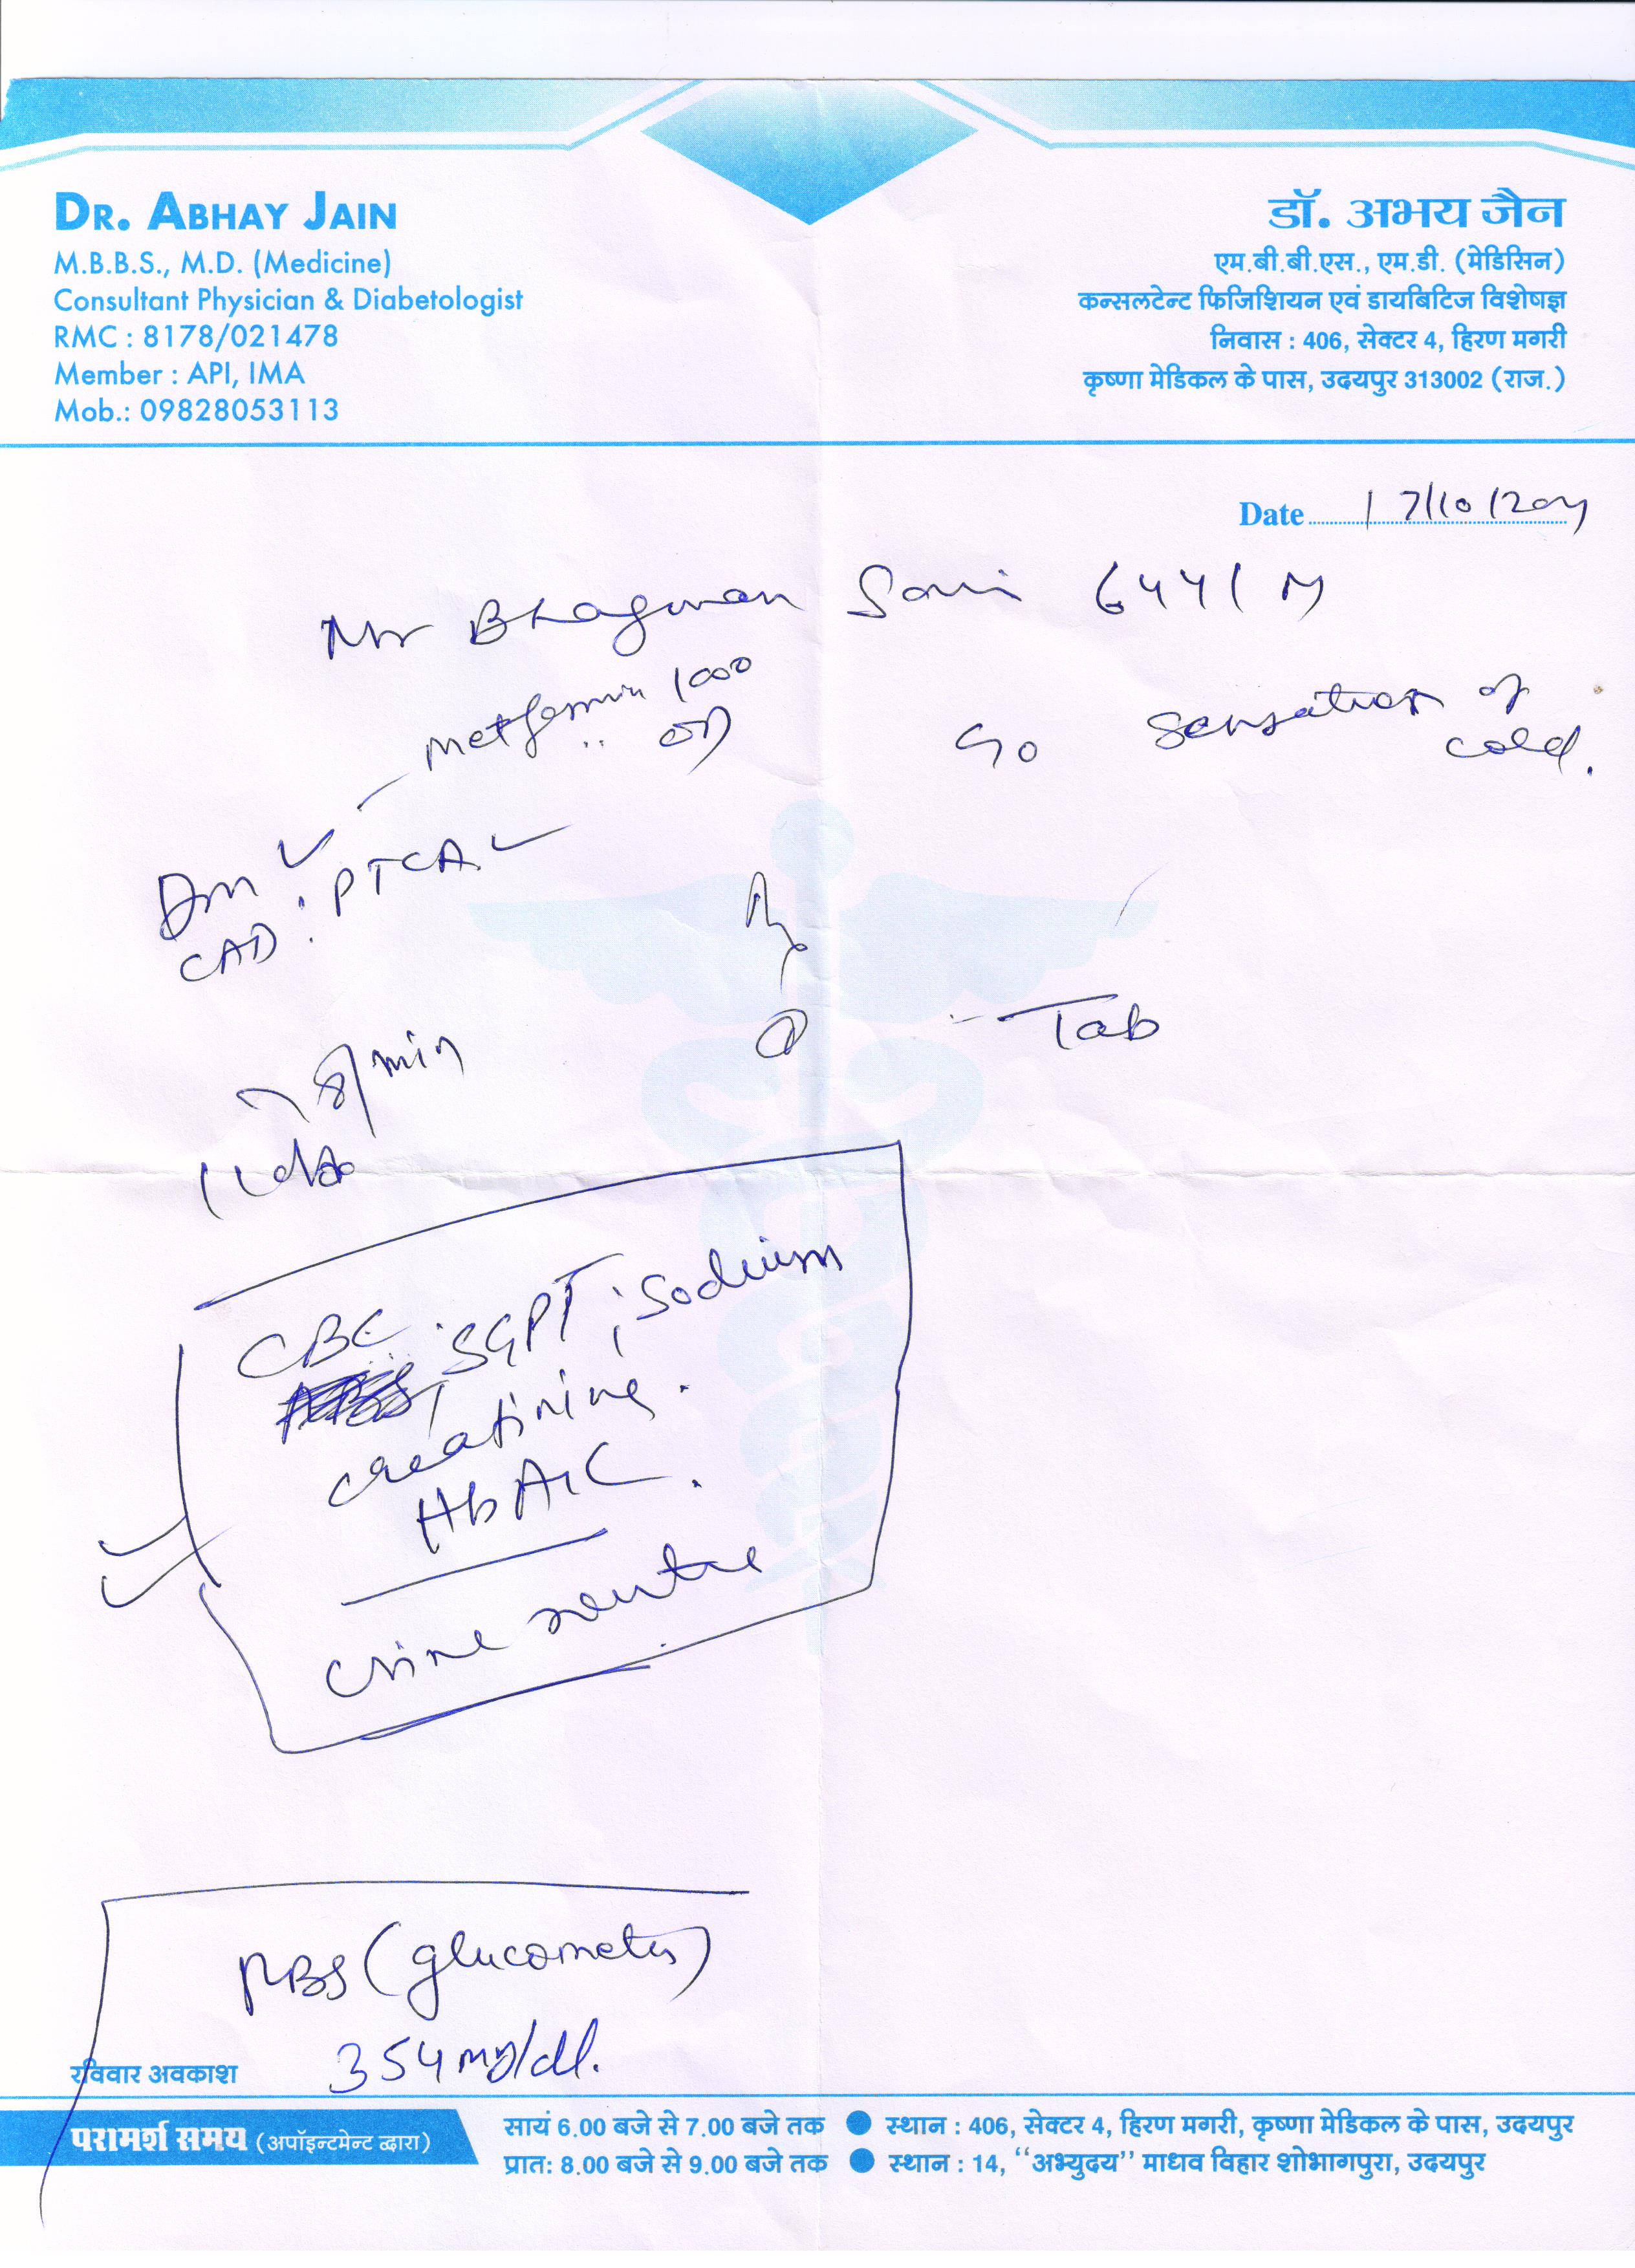 DR. ABHAY JAIN
M.B.B.S., M.D. (Medicine)
Consultant Physician & Diabetologist
RMC : 8178/021478
Member : API, IMA
Mob.: 09828053113
डॉ. अभय जैन
एम.बी.बी.एस., एम.डी. (मेडिसिन)
कन्सलटेन्ट फिजिशियन एवं डायबिटिज विशेषज्ञ
निवास : 406, सेक्टर 4, हिरण मगरी
कृष्णा मेडिकल के पास, उदयपुर 313002 (राज.)
Date 17/10/
Mr Bhagwan Soni 64y/M
metformin 1000
OD
sensation of
cold.
DM
CAD : PTCA
Tab
78/min
CBC SGPT ; Sodium
creatinine.
HbA1C.
urine routine
RBS (glucometer)
354 mg/dl.
रविवार अवकाश
परामर्श समय (अपॉइन्टमेन्ट द्वारा)
सायं 6.00 बजे से 7.00 बजे तक ● स्थान : 406, सेक्टर 4, हिरण मगरी, कृष्णा मेडिकल के पास, उदयपुर
प्रात: 8.00 बजे से 9.00 बजे तक ● स्थान : 14, ‘‘अभ्युदय’’ माधव विहार शोभागपुरा, उदयपुर